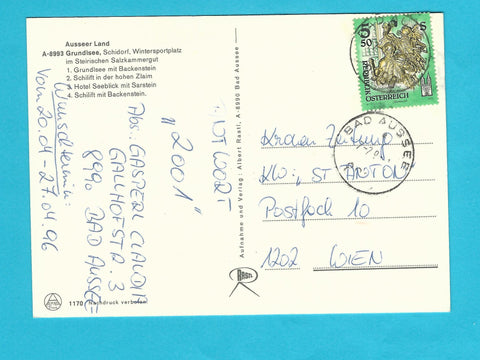 Ausseer Land
A-8993 Grundlsee, Schidorf, Wintersportplatz
im Steirischen Salzkammergut
1. Grundlsee mit Backenstein
2. Schilift in der hohen Zlaim
3. Hotel Seeblick mit Sarstein
4. Schilift mit Backenstein.
"ANTWORT
"2001"
Abs: GASPERL CLAUDIA
GALLHOFSTR. 3
8990 BAD AUSSEE
Wunschtermin:
vom 20.04-27.04.96
1170 Nachdruck verboten
Aufnahme und Verlag: Albert Rastl, A-8990 Bad Aussee
RASTL
5
50
S
REPUBLIK
ÖSTERREICH
BAD AUSSEE
Kronen Zeitung
KW: "ST. ANTON"
Postfach 10
1202 WIEN